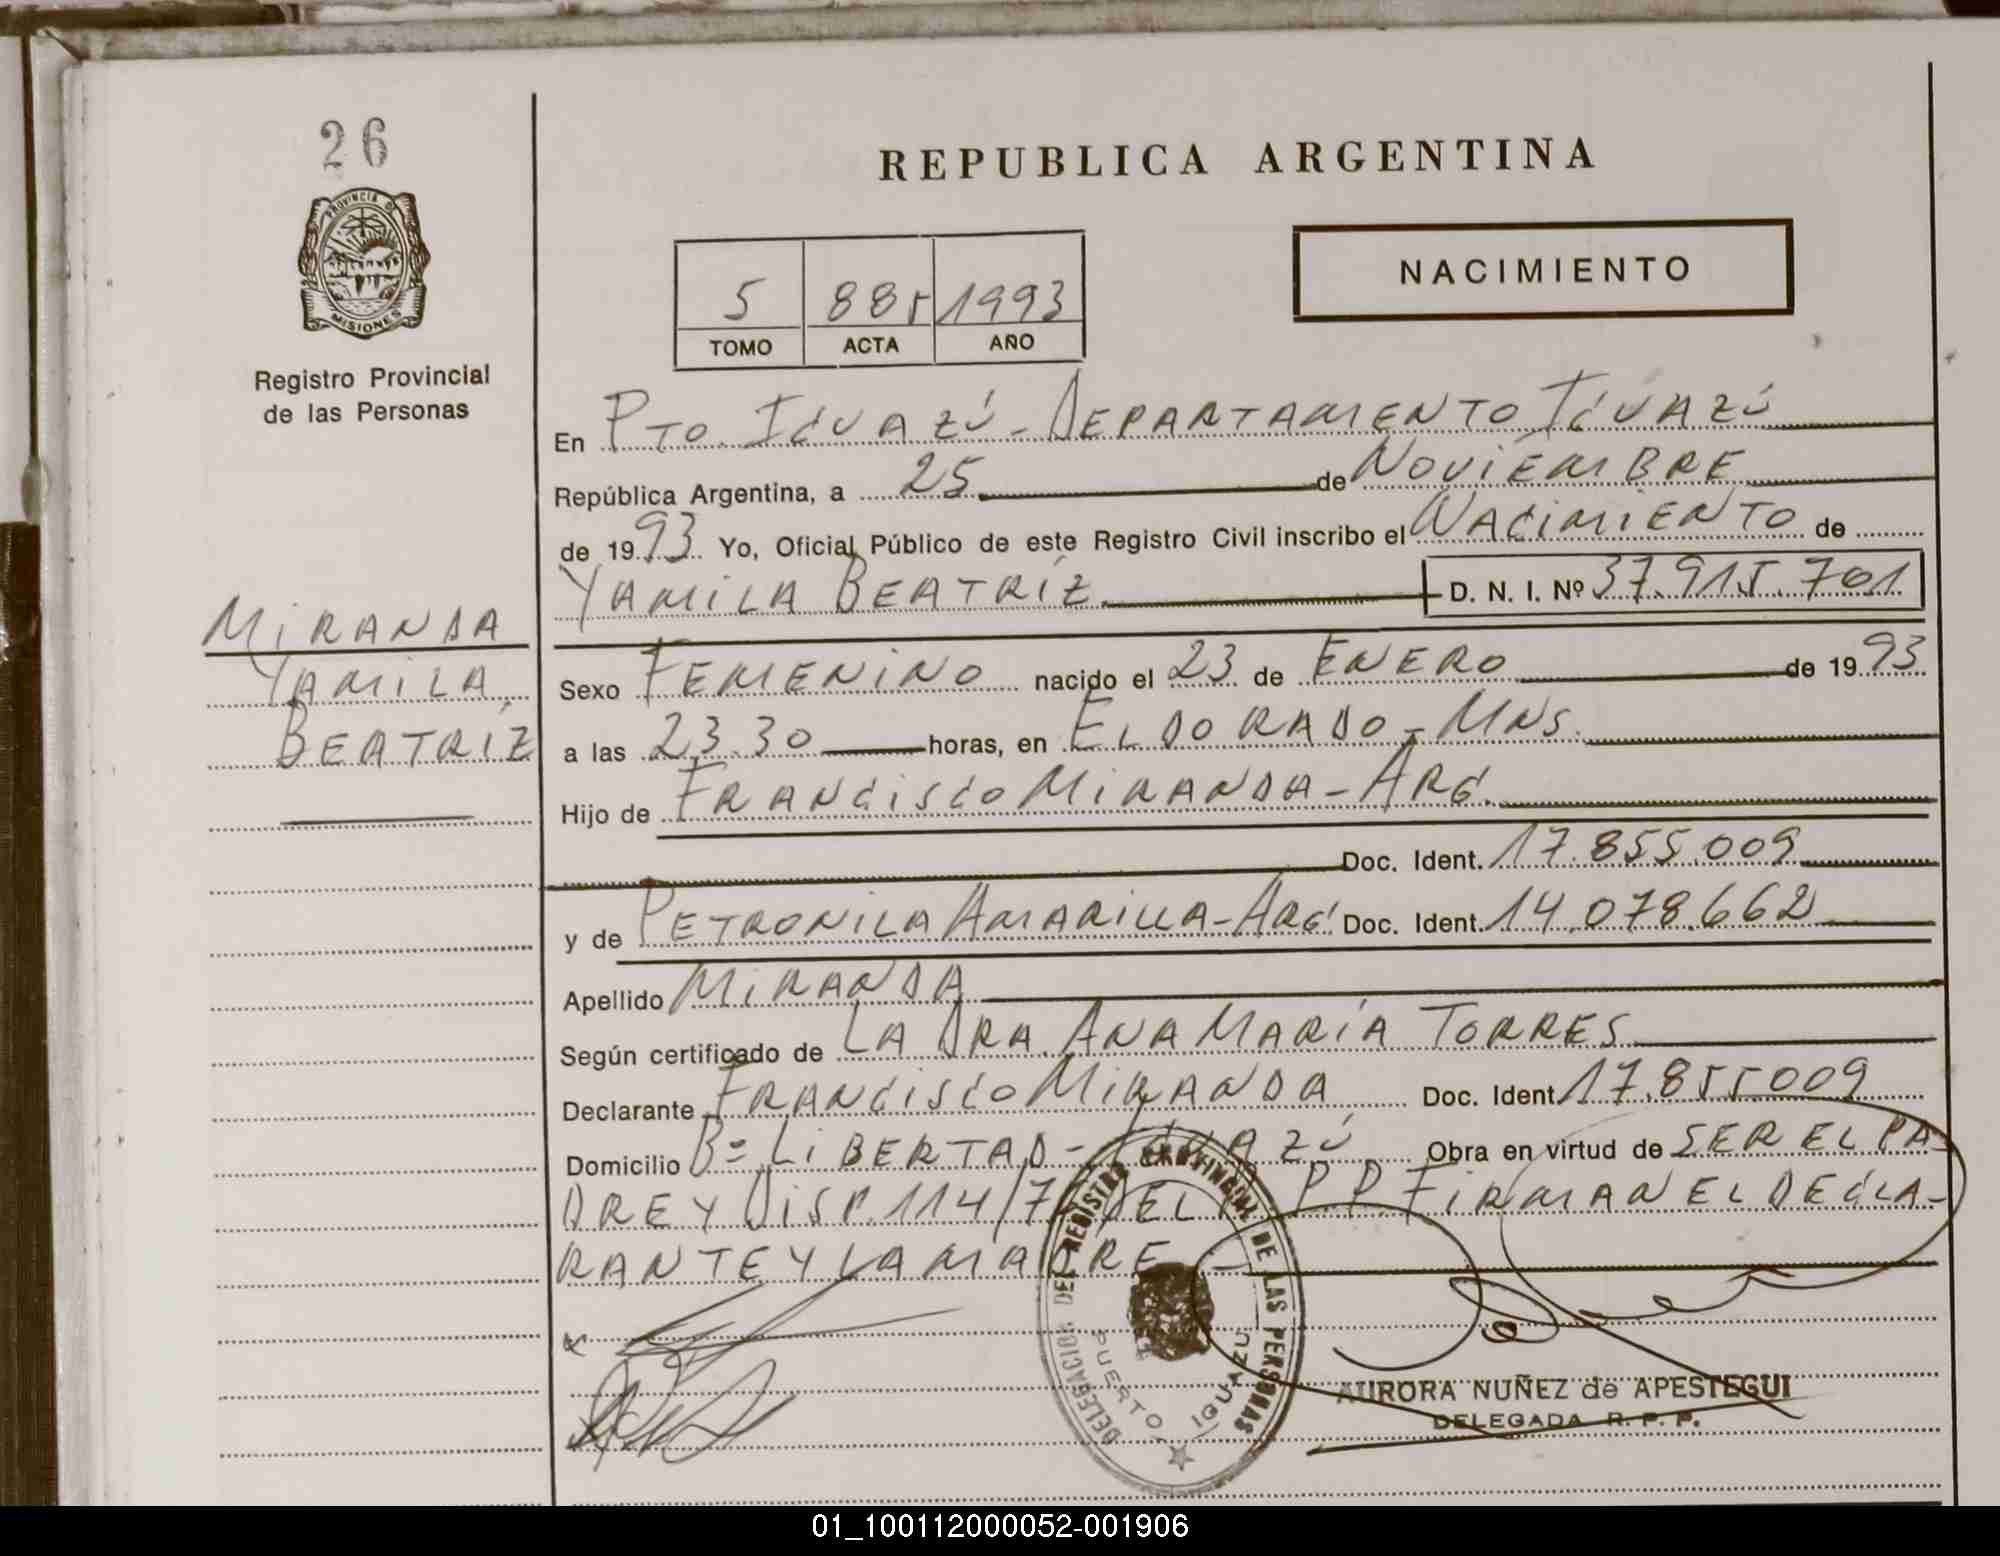 26
PROVINCIA DE
MISIONES
Registro Provincial
de las Personas
MIRANDA
YAMILA
BEATRÍZ
REPUBLICA ARGENTINA
NACIMIENTO
5 885 1993
TOMO ACTA AÑO
En PTO. IGUAZÚ - DEPARTAMENTO IGUAZÚ
República Argentina, a 25 de NOVIEMBRE
de 1993 Yo, Oficial Público de este Registro Civil inscribo el NACIMIENTO de
YAMILA BEATRÍZ D. N. I. Nº 37.915.701
Sexo FEMENINO nacido el 23 de ENERO de 1993
a las 23.30 horas, en ELDORADO - MNS.
Hijo de FRANCISCO MIRANDA - ARG.
Doc. Ident. 17.855.009
y de PETRONILA AMARILLA - ARG. Doc. Ident. 14.078.662
Apellido MIRANDA
Según certificado de LA DRA. ANA MARÍA TORRES
Declarante FRANCISCO MIRANDA Doc. Ident. 17.855009
Domicilio Bº LIBERTAD - IGUAZÚ Obra en virtud de SER EL PA-
DRE Y DISP. 114/7 DEL R P P. FIRMAN EL DECLA-
RANTE Y LA MADRE
DELEGACION DEL REGISTRO PROVINCIAL DE LAS PERSONAS
PUERTO IGUAZU
AURORA NUÑEZ de APESTEGUI
DELEGADA R. P. P.
01_100112000052-001906